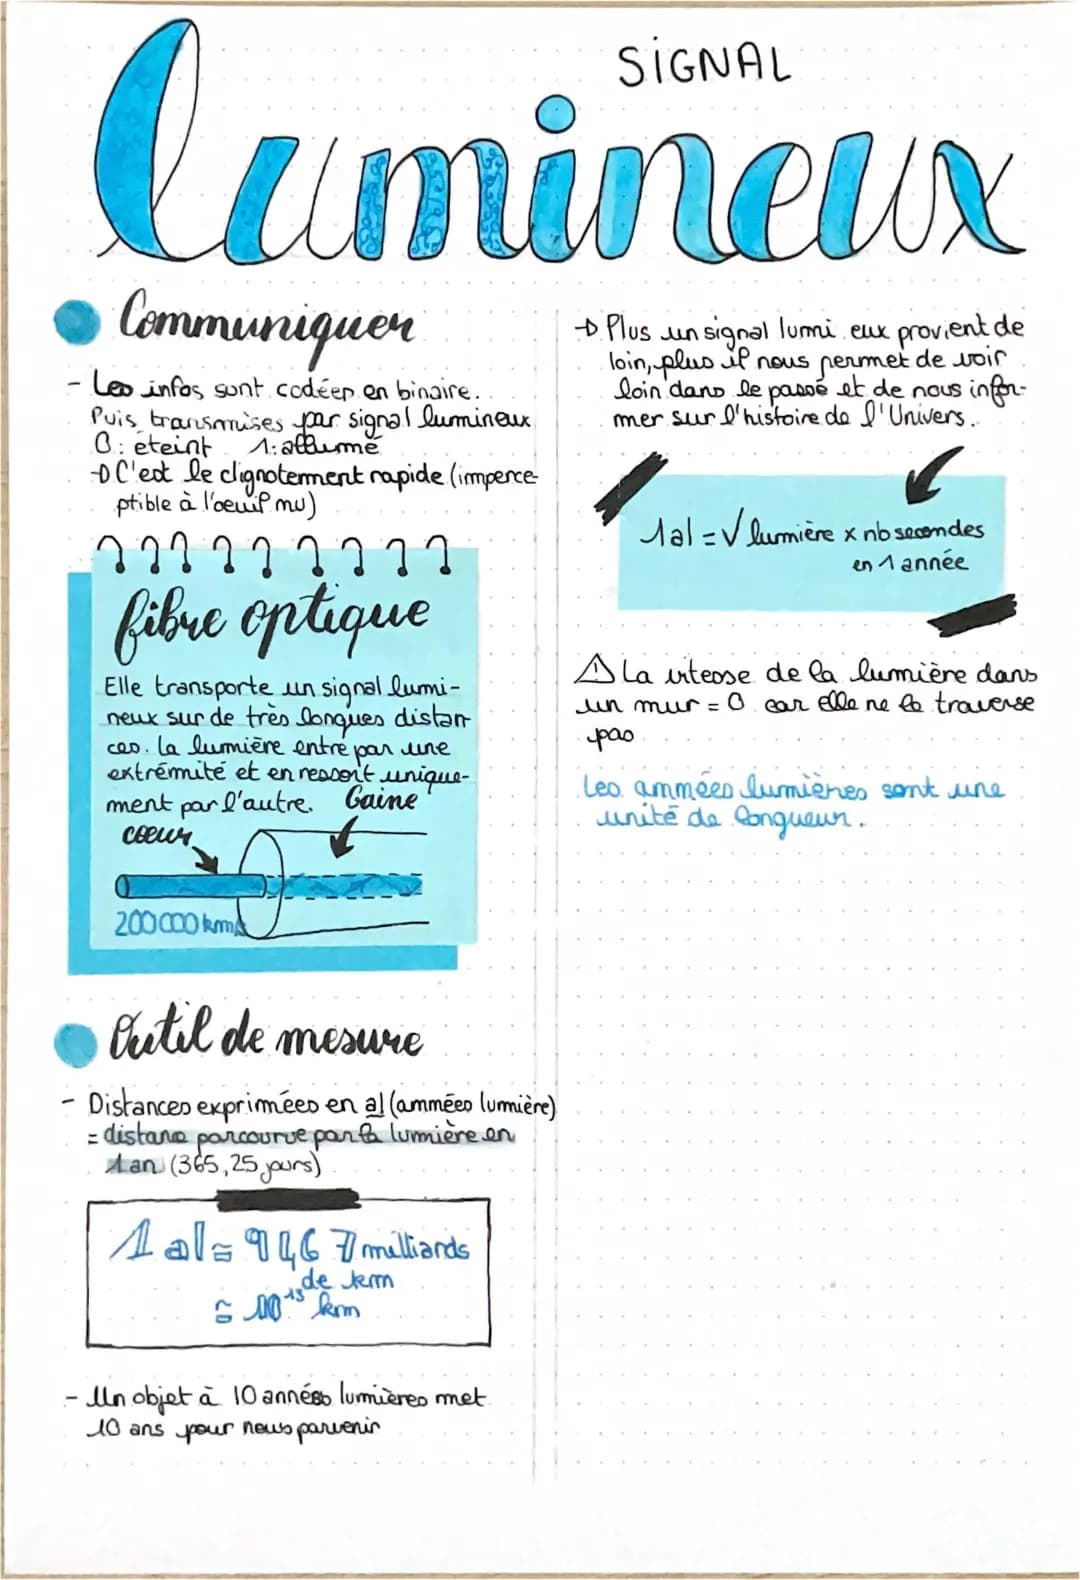 SIGNAL
lumineux
Communiquer
- Les infos sont codées en binaire.
Puis transmises par signal lumineux
0 : éteint 1 : allumé
→ C'est le clignotement rapide (imperce-
ptible à l'oeuil nu)
fibre optique
Elle transporte un signal lumi-
neux sur de très longues distan
ces. La lumière entre par une
extrémité et en ressort unique-
ment par l'autre. Gaine
coeur
200 000 km/s
Outil de mesure
- Distances exprimées en al (années lumière)
= distane parcourue par la lumière en
1 an (365,25 jours)
1 al ≈ 9 467 milliards
de km
≈ 10¹³ km
- Un objet à 10 années lumières met
10 ans pour nous parvenir
→ Plus un signal lumi eux provient de
loin, plus il nous permet de voir
loin dans le passé et de nous infor-
mer sur l'histoire de l'Univers.
1 al = √ lumière x nb secondes
en 1 année
⚠ La vitesse de la lumière dans
un mur = 0 car elle ne le traverse
pas
Les années lumières sont une
unité de longueur.